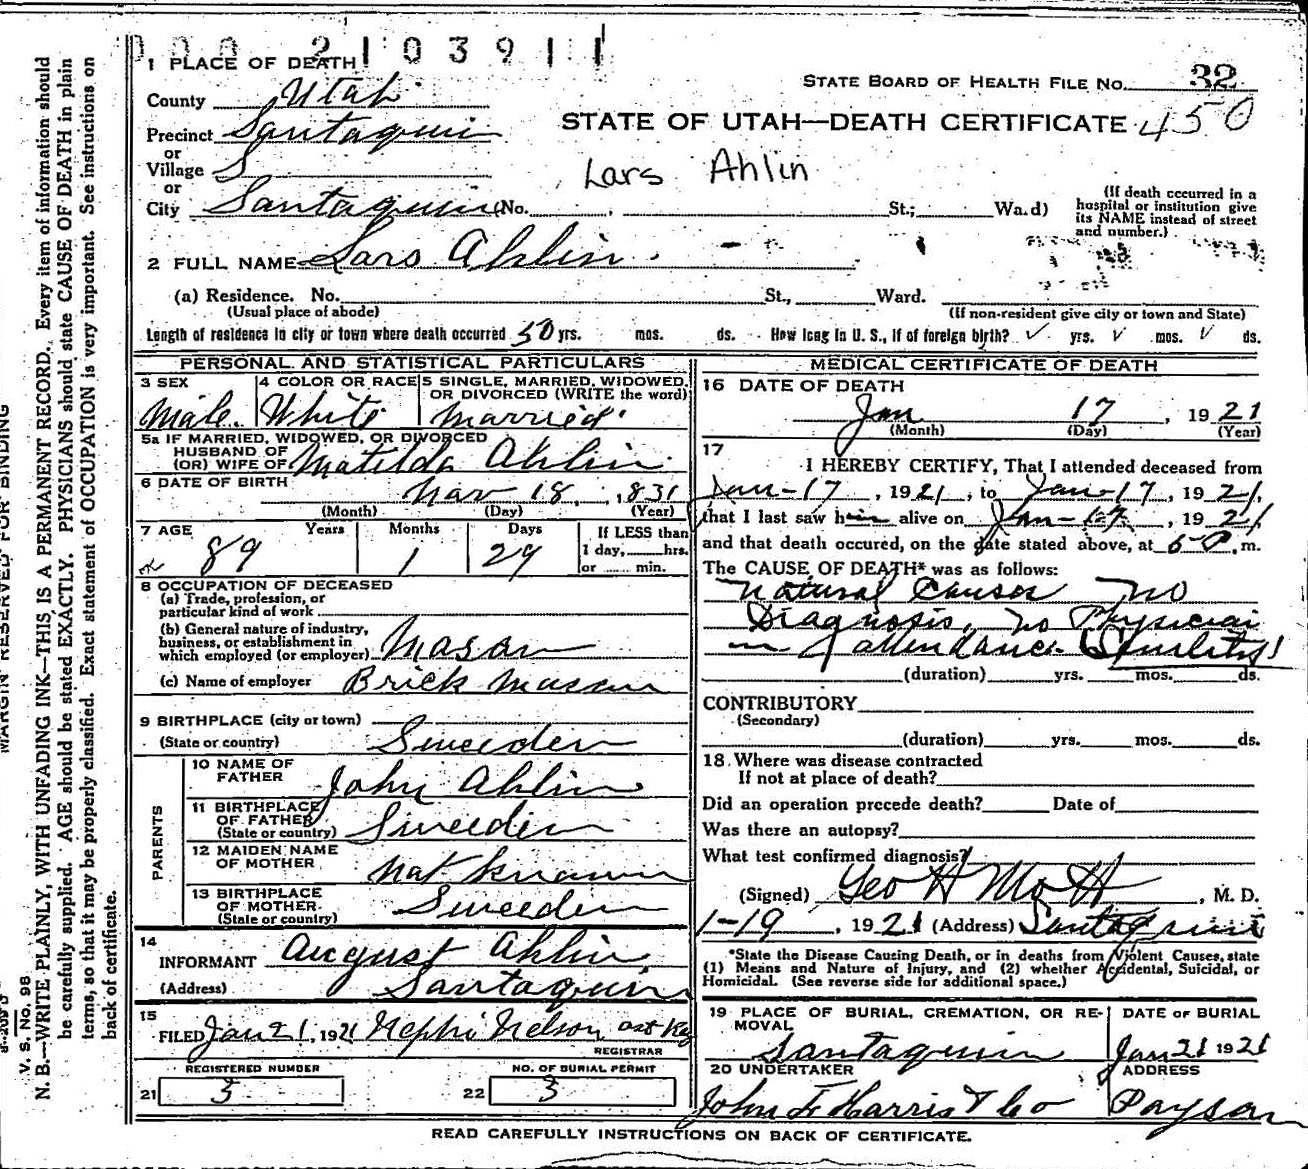 000 2103911
1 PLACE OF DEATH
STATE BOARD OF HEALTH FILE No. 32
County Utah
STATE OF UTAH—DEATH CERTIFICATE 450
Precinct Santaquin
or
Village S
Lars Ahlin
or
City Santaquin (No. , St.; Wa.d)
(If death occurred in a hospital or institution give its NAME instead of street and number.)
2 FULL NAME Lars Ahlin
(a) Residence. No. St., Ward.
(Usual place of abode) (If non-resident give city or town and State)
Length of residence in city or town where death occurred 50 yrs. mos. ds. How long in U. S., if of foreign birth? ✓ yrs. ✓ mos. ✓ ds.
PERSONAL AND STATISTICAL PARTICULARS
3 SEX
Male
4 COLOR OR RACE
White
5 SINGLE, MARRIED, WIDOWED, OR DIVORCED (WRITE the word)
Married
5a IF MARRIED, WIDOWED, OR DIVORCED
HUSBAND OF
(OR) WIFE OF Matilda Ahlin
6 DATE OF BIRTH Nov 18, 1831
(Month) (Day) (Year)
7 AGE Years Months Days If LESS than
89 1 29 1 day, hrs.
or min.
8 OCCUPATION OF DECEASED
(a) Trade, profession, or
particular kind of work
(b) General nature of industry,
business, or establishment in
which employed (or employer) Mason
(c) Name of employer Brick Mason
9 BIRTHPLACE (city or town)
(State or country) Sweeden
PARENTS
10 NAME OF
FATHER John Ahlin
11 BIRTHPLACE
OF FATHER
(State or country) Sweeden
12 MAIDEN NAME
OF MOTHER Not Known
13 BIRTHPLACE
OF MOTHER
(State or country) Sweeden
14
INFORMANT August Ahlin
(Address) Santaquin
15
FILED Jan 21, 1921 Nephi Nelson ast Reg
REGISTRAR
REGISTERED NUMBER NO. OF BURIAL PERMIT
21 3 22 3
MEDICAL CERTIFICATE OF DEATH
16 DATE OF DEATH
Jan 17, 1921
(Month) (Day) (Year)
17
I HEREBY CERTIFY, That I attended deceased from
Jan-17, 1921, to Jan-17, 1921,
that I last saw him alive on Jan-17, 1921
and that death occured, on the date stated above, at 6 P.m.
The CAUSE OF DEATH* was as follows:
Natural Causes No
Diagnosis, no Physician
in attendance (Senility)
(duration) yrs. mos. ds.
CONTRIBUTORY
(Secondary)
(duration) yrs. mos. ds.
18. Where was disease contracted
If not at place of death?
Did an operation precede death? Date of
Was there an autopsy?
What test confirmed diagnosis?
(Signed) Geo H Mott, M. D.
1-19, 1921 (Address) Santaquin
*State the Disease Causing Death, or in deaths from Violent Causes, state
(1) Means and Nature of Injury, and (2) whether Accidental, Suicidal, or
Homicidal. (See reverse side for additional space.)
19 PLACE OF BURIAL, CREMATION, OR RE-
MOVAL
Santaquin
DATE OF BURIAL
Jan 21 1921
20 UNDERTAKER
John F Harris & Co
ADDRESS
Payson
READ CAREFULLY INSTRUCTIONS ON BACK OF CERTIFICATE.
MARGIN RESERVED FOR BINDING
V. S. No. 98
N. B.—WRITE PLAINLY, WITH UNFADING INK—THIS IS A PERMANENT RECORD. Every item of information should
be carefully supplied. AGE should be stated EXACTLY. PHYSICIANS should state CAUSE OF DEATH in plain
terms, so that it may be properly classified. Exact statement of OCCUPATION is very important. See instructions on
back of certificate.